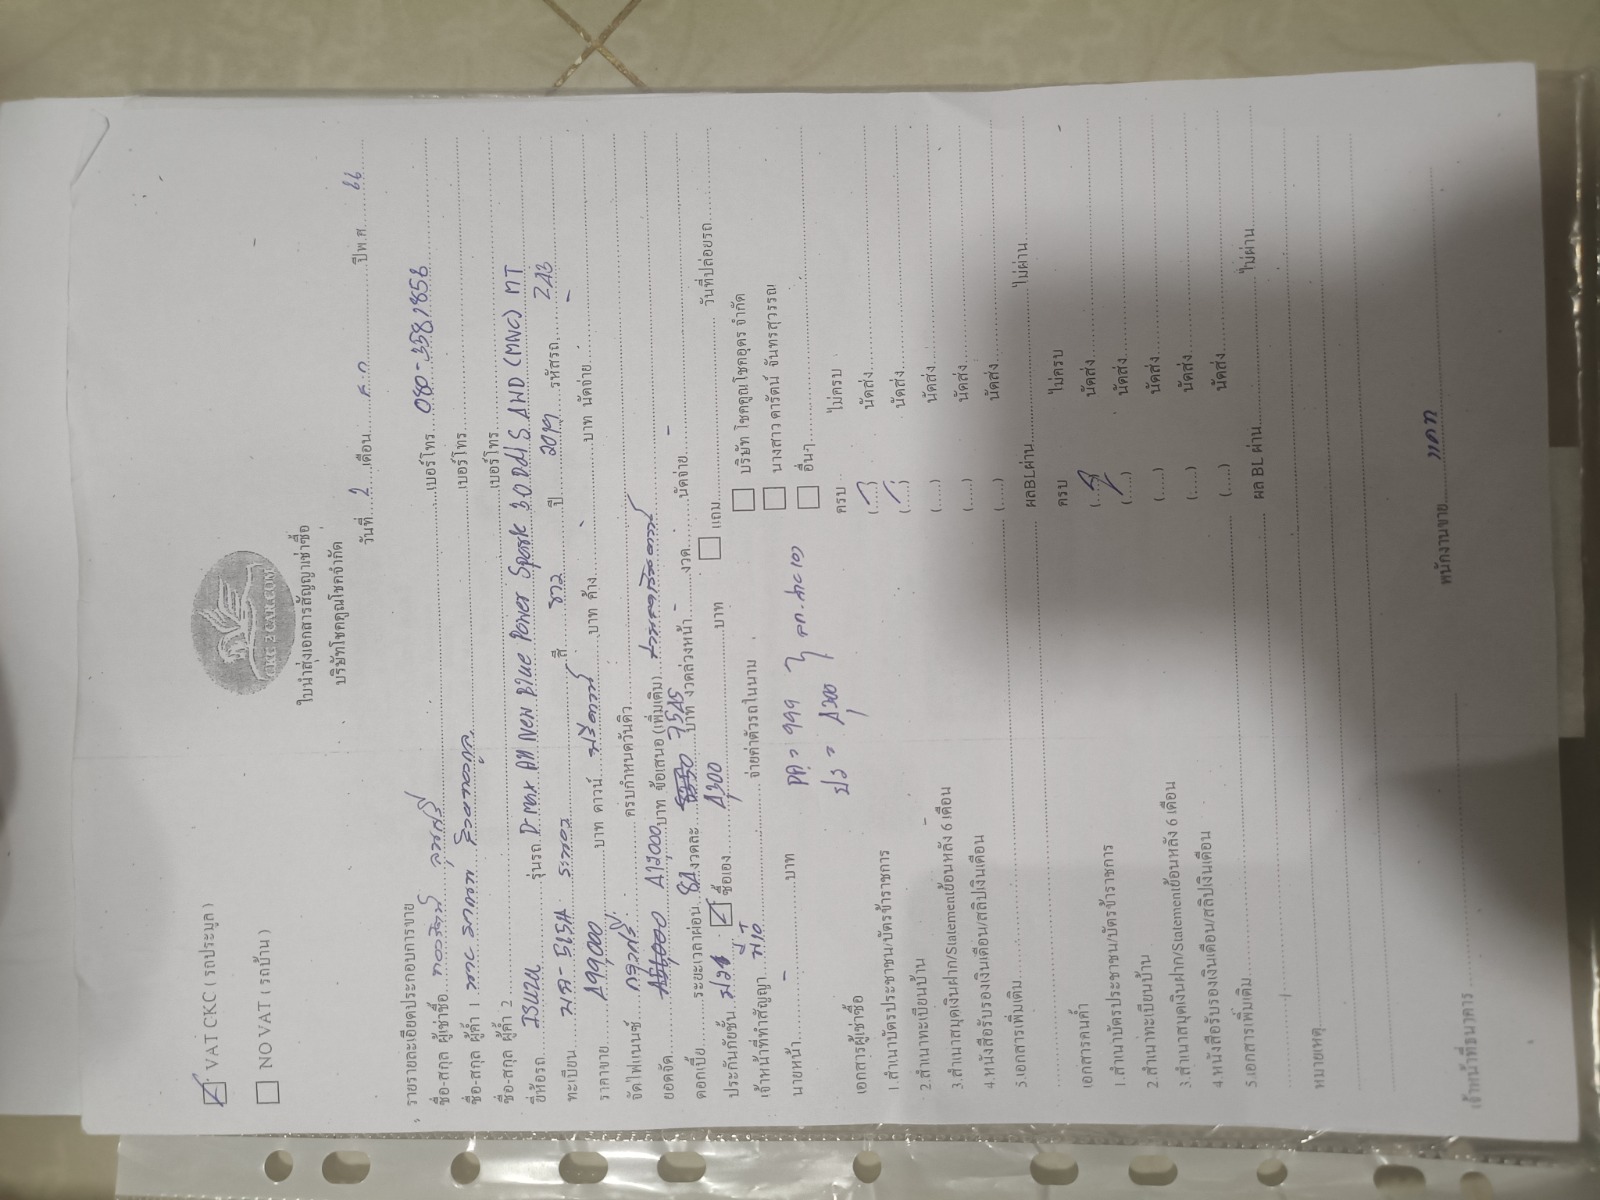 VAT CKC ( รถประมูล )
NO VAT ( รถบ้าน )
CKC 2 CAR.COM
ใบนำส่งเอกสารสัญญาเช่าซื้อ
บริษัทโชคคูณโชคจำกัด
วันที่ 2 เดือน ต.ค ปีพ.ศ. 66
รายรายละเอียดประกอบการขาย
ชื่อ-สกุล ผู้เช่าซื้อ เบอร์โทร 080-3581856
ชื่อ-สกุล ผู้ค้ำ 1 เบอร์โทร
ชื่อ-สกุล ผู้ค้ำ 2 เบอร์โทร
ยี่ห้อรถ ISUZU รุ่นรถ D-max All New Blue Power Spark 3.0 Ddi S 4WD (MNC) MT
ทะเบียน ระยอง สี ขาว ปี 2019 รหัสรถ
ราคาขาย 499,000 บาท ดาวน์ ฟรีดาวน์ บาท ค้าง - บาท นัดจ่าย -
จัดไฟแนนซ์ กรุงศรี ครบกำหนดวันคิว
ยอดจัด บาท ข้อเสนอ (เพิ่มเติม)
ดอกเบี้ย ระยะเวลาผ่อน 84 งวดละ บาท งวดล่วงหน้า - งวด นัดจ่าย -
ประกันภัยชั้น ซื้อเอง บาท แถม วันที่ปล่อยรถ
เจ้าหน้าที่ที่ทำสัญญา จ่ายค่าตัวรถในนาม บริษัท โชคคูณโชคอุดร จำกัด
นายหน้า - บาท นางสาว ดารัตน์ จันทรสุวรรณ
อื่นๆ
เอกสารผู้เช่าซื้อ ครบ ไม่ครบ
1.สำเนาบัตรประชาชน/บัตรข้าราชการ (....) นัดส่ง
2.สำเนาทะเบียนบ้าน (....) นัดส่ง
3.สำเนาสมุดเงินฝาก/Statementย้อนหลัง 6 เดือน (....) นัดส่ง
4.หนังสือรับรองเงินเดือน/สลิปเงินเดือน (....) นัดส่ง
5.เอกสารเพิ่มเติม (....) นัดส่ง
ผลBLผ่าน ไม่ผ่าน
เอกสารคนค้ำ ครบ ไม่ครบ
1.สำเนาบัตรประชาชน/บัตรข้าราชการ (....) นัดส่ง
2.สำเนาทะเบียนบ้าน (....) นัดส่ง
3.สำเนาสมุดเงินฝาก/Statementย้อนหลัง 6 เดือน (....) นัดส่ง
4.หนังสือรับรองเงินเดือน/สลิปเงินเดือน (....) นัดส่ง
5.เอกสารเพิ่มเติม (....) นัดส่ง
ผล BL ผ่าน ไม่ผ่าน
หมายเหตุ
พนักงานขาย
เจ้าหน้าที่ธนาคาร